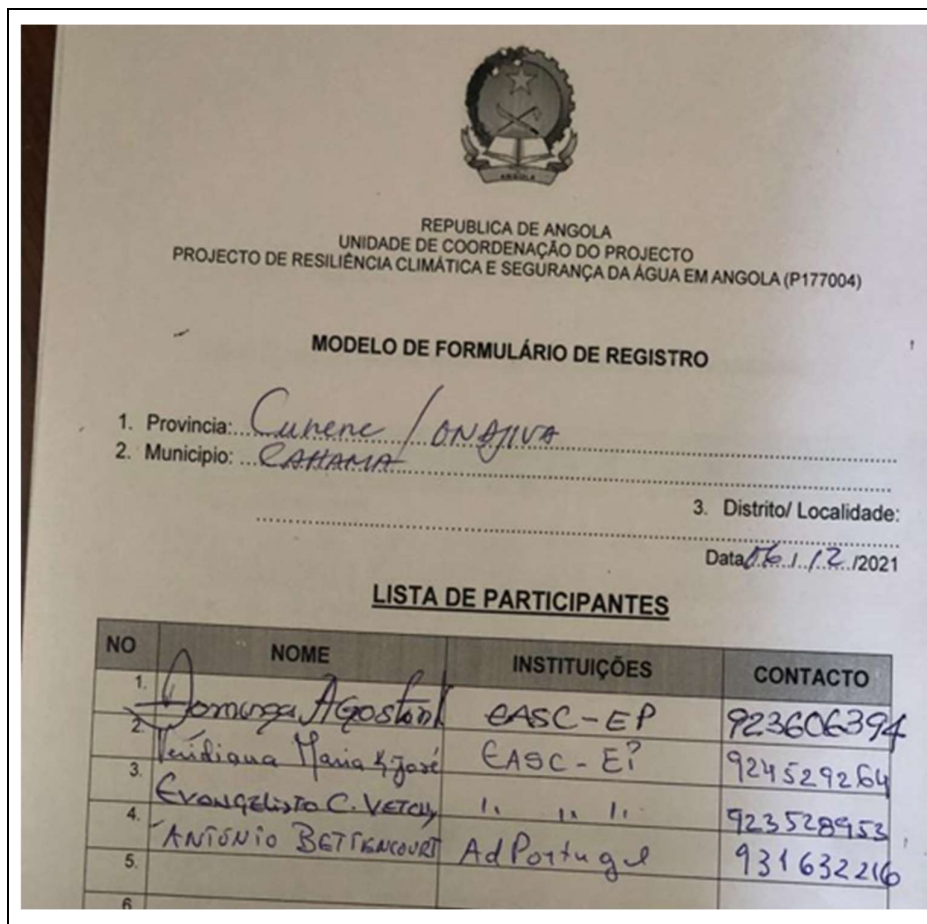 ANGOLA
REPUBLICA DE ANGOLA
UNIDADE DE COORDENAÇÃO DO PROJECTO
PROJECTO DE RESILIÊNCIA CLIMÁTICA E SEGURANÇA DA ÁGUA EM ANGOLA (P177004)
MODELO DE FORMULÁRIO DE REGISTRO
1. Provincia: Cunene / ONDJIVA
2. Municipio: CAHAMA
3. Distrito/ Localidade:
Data 06 / 12 /2021
LISTA DE PARTICIPANTES
NO NOME INSTITUIÇÕES CONTACTO
1. Dominga EASC-EP 923606394
2. Maria José EASC-EP 924529264
3. EVANGELISTO C. 923528953
4. ANTÓNIO BETTENCOURT AdPortugal 931632216
5.
6